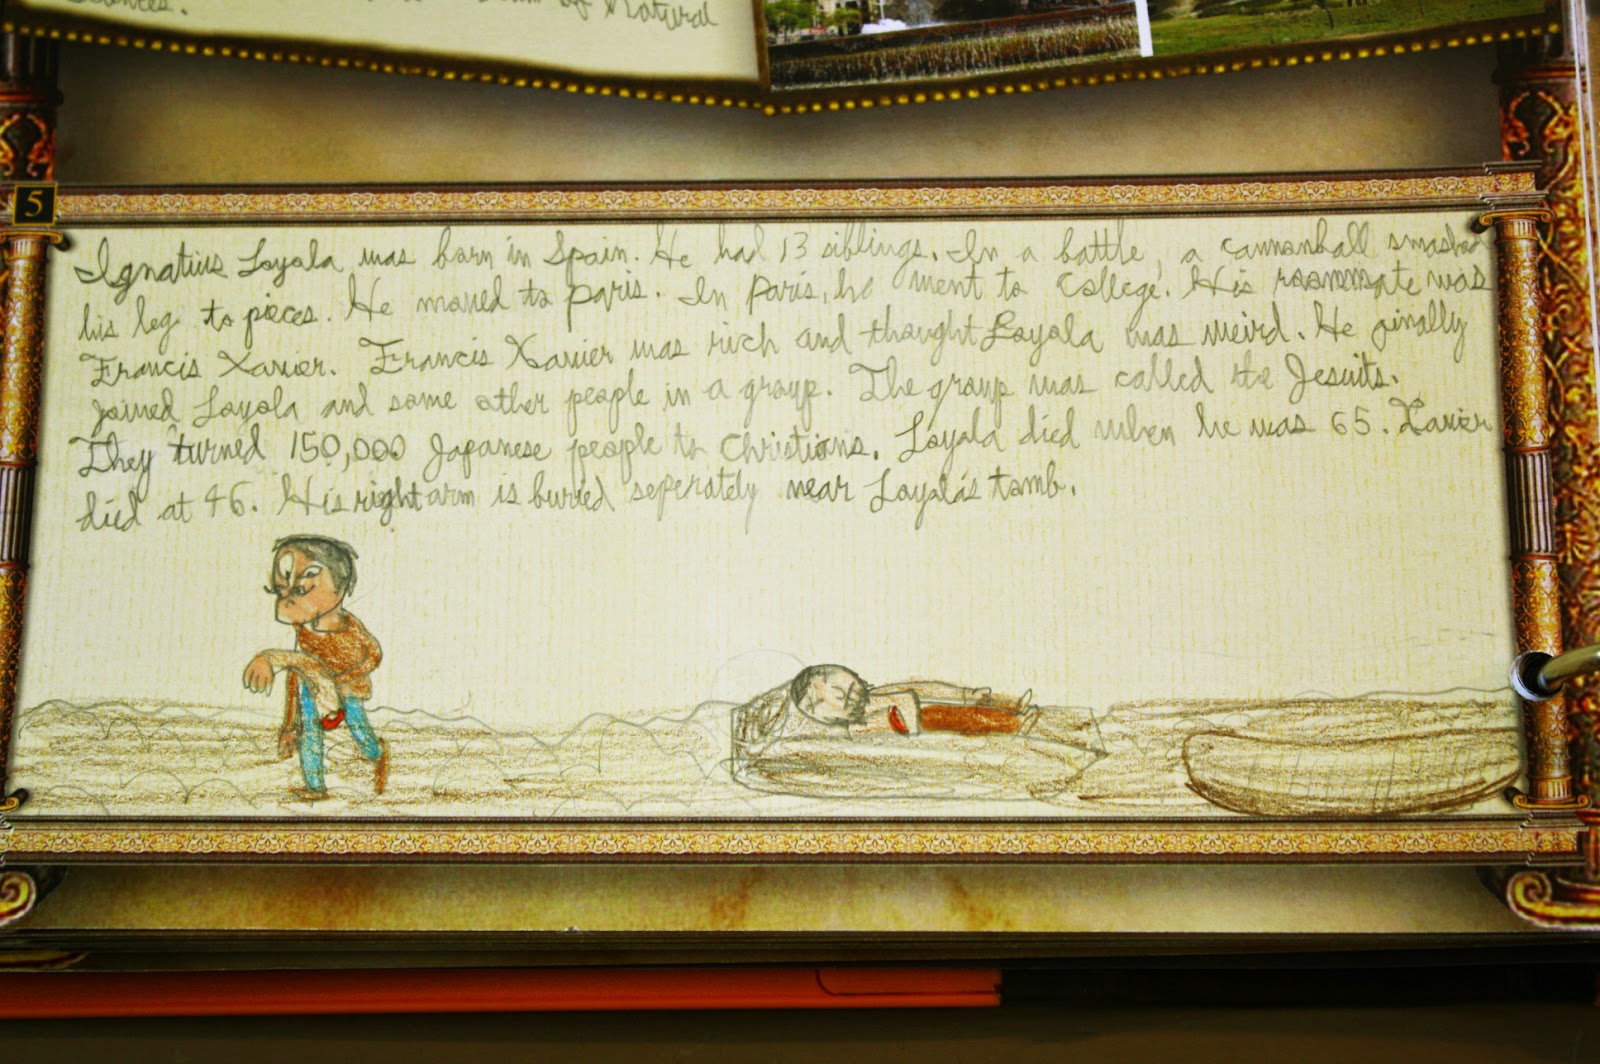 of Natural
5
Ignatius Loyola was born in Spain. He had 13 siblings. In a battle, a cannonball smashed
his leg to pieces. He moved to Paris. In Paris, he went to College. His roommate was
Francis Xavier. Francis Xavier was rich and thought Loyola was weird. He finally
joined Loyola and some other people in a group. The group was called the Jesuits.
They turned 150,000 Japanese people to Christians. Loyola died when he was 65. Xavier
died at 46. His right arm is buried seperately near Loyola's tomb.